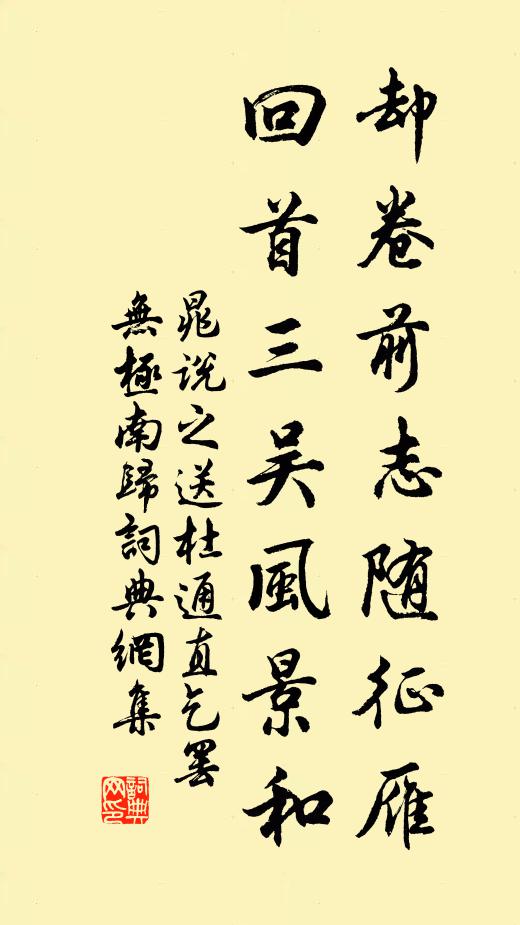 却卷前志随征雁
回首三吴風景和
晁説之送杜通直乞罢
無極南歸詞典網集
詞典網印